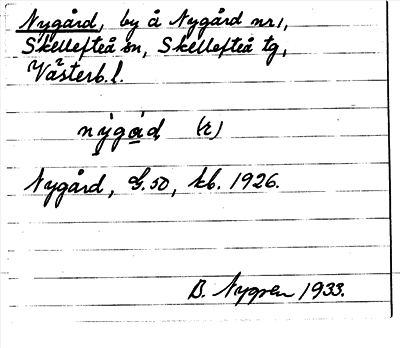 Nygård, by å Nygård nr 1,
Skellefteå sn, Skellefteå tg,
Västerb. l.
nỳgád (r)
Nygård, G. 50, kb. 1926.
B. Nygren 1933.